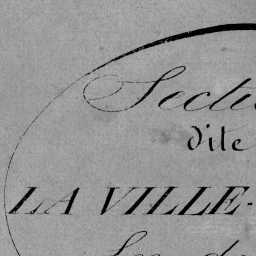 Secti
dite
LA VILLE-